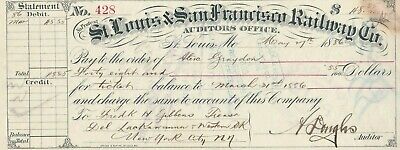 Statement
Debit.
Credit.
Balance
Total
No. 428
$
St. Louis & San Francisco Railway Co.
AUDITOR'S OFFICE.
St. Louis, Mo. May 7th 1886
Pay to the order of Alex Graydon
Forty eight and 55 Dollars
for Ticket balance to March 31st 1886
and charge the same to account of this Company
To Fredk H Gibbens Treasr
Del Lackawanna & Western RR
New York City NY
Auditor